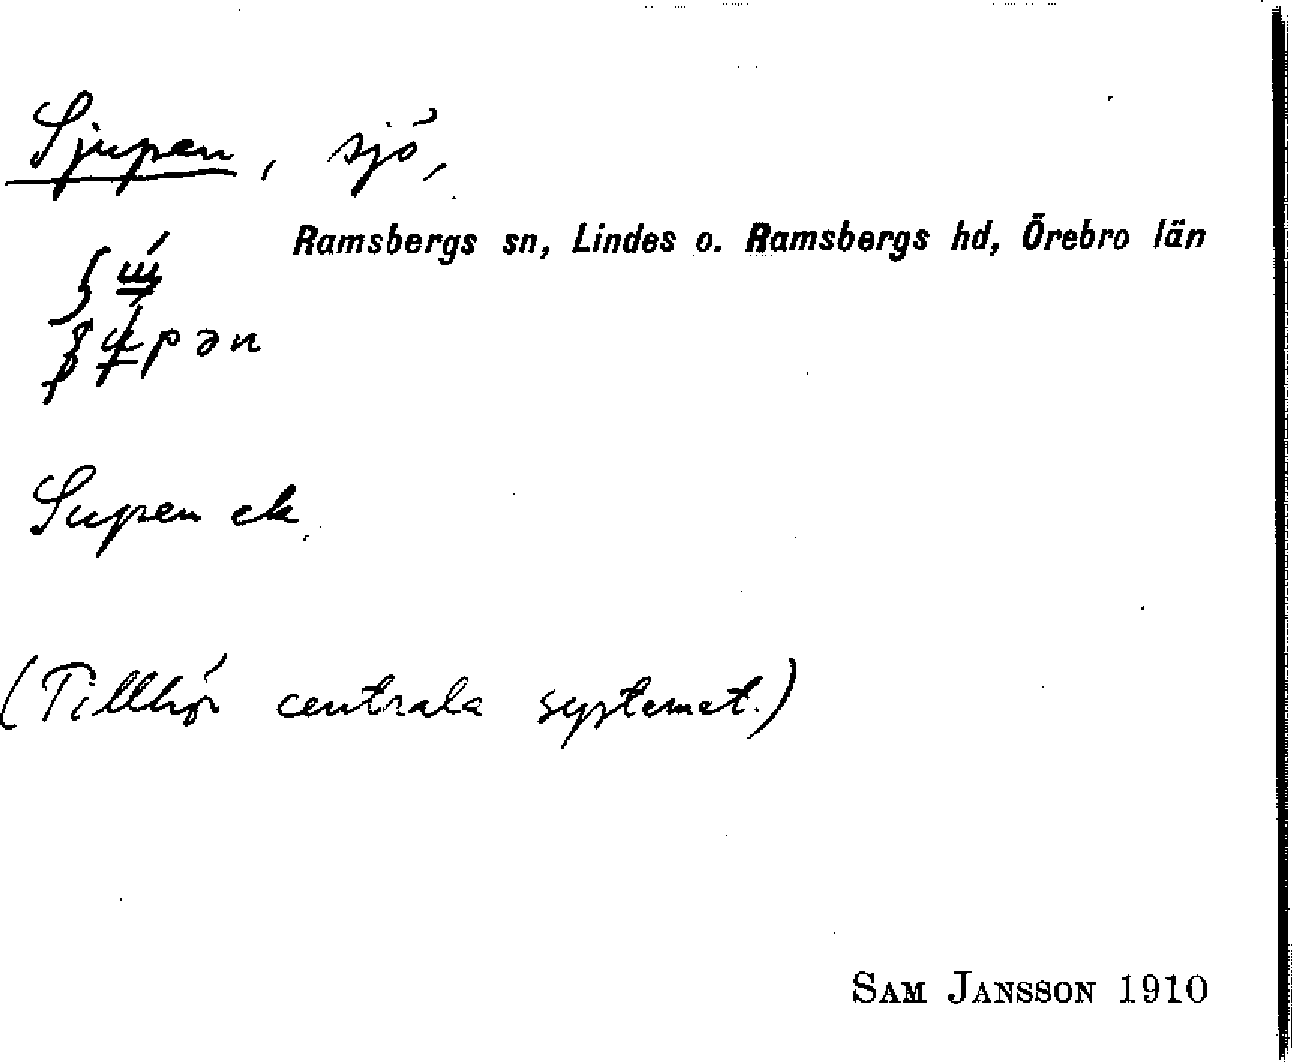 Sjupen, sjö,
Ramsbergs sn, Lindes o. Ramsbergs hd, Örebro län
Supen ek.
(Tillhör centrala systemet.)
SAM JANSSON 1910